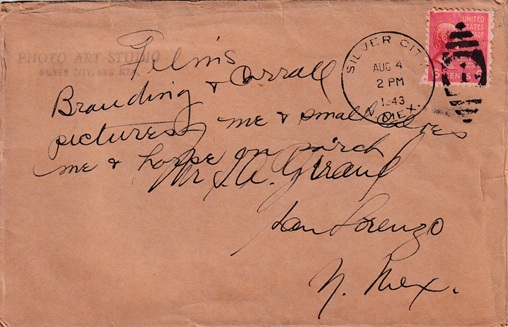 PHOTO ART STUDIO
SILVER CITY, NEW MEX.
Films
Branding & Corrall
pictures, me & small calves
me & horse on porch
Mr
San Lorenzo
N. Mex.
SILVER CITY
AUG 4
2 PM
1943
N. MEX.
UNITED
STATES